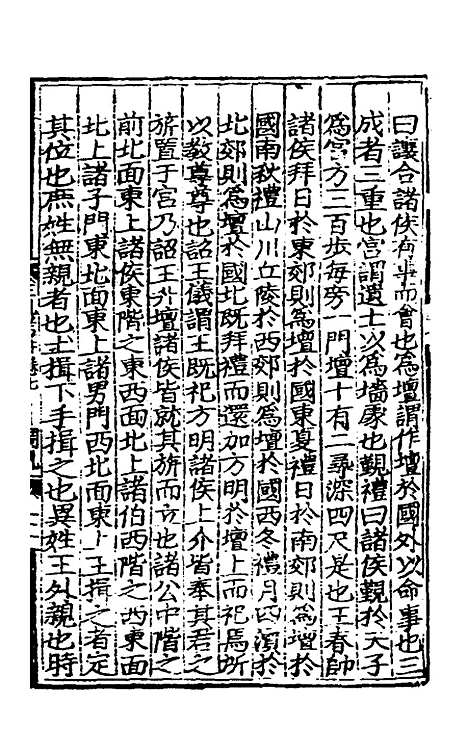 曰讓合諸侯有事而會也為壇謂作壇於國外以命事也三
成者三重也宮謂遺土以為墻處也覲禮曰諸侯覲於天子
為宮方三百步每旁一門壇十有二尋深四尺是也王春帥
諸侯拜日於東郊則為壇於國東夏禮日於南郊則為壇於
國南秋禮山川丘陵於西郊則為壇於國西冬禮月四瀆於
北郊則為壇於國北既拜禮而還加方明於壇上而祀焉所
以教尊尊也詔王儀謂王既祀方明諸侯上介皆奉其君之
旂置于宮乃詔王升壇諸侯皆就其旂而立也諸公中階之
前北面東上諸侯東階之東西面北上諸伯西階之西東面
北上諸子門東北面東上諸男門西北面東上王揖之者定
其位也庶姓無親者也土揖下手揖之也異姓王外親也時